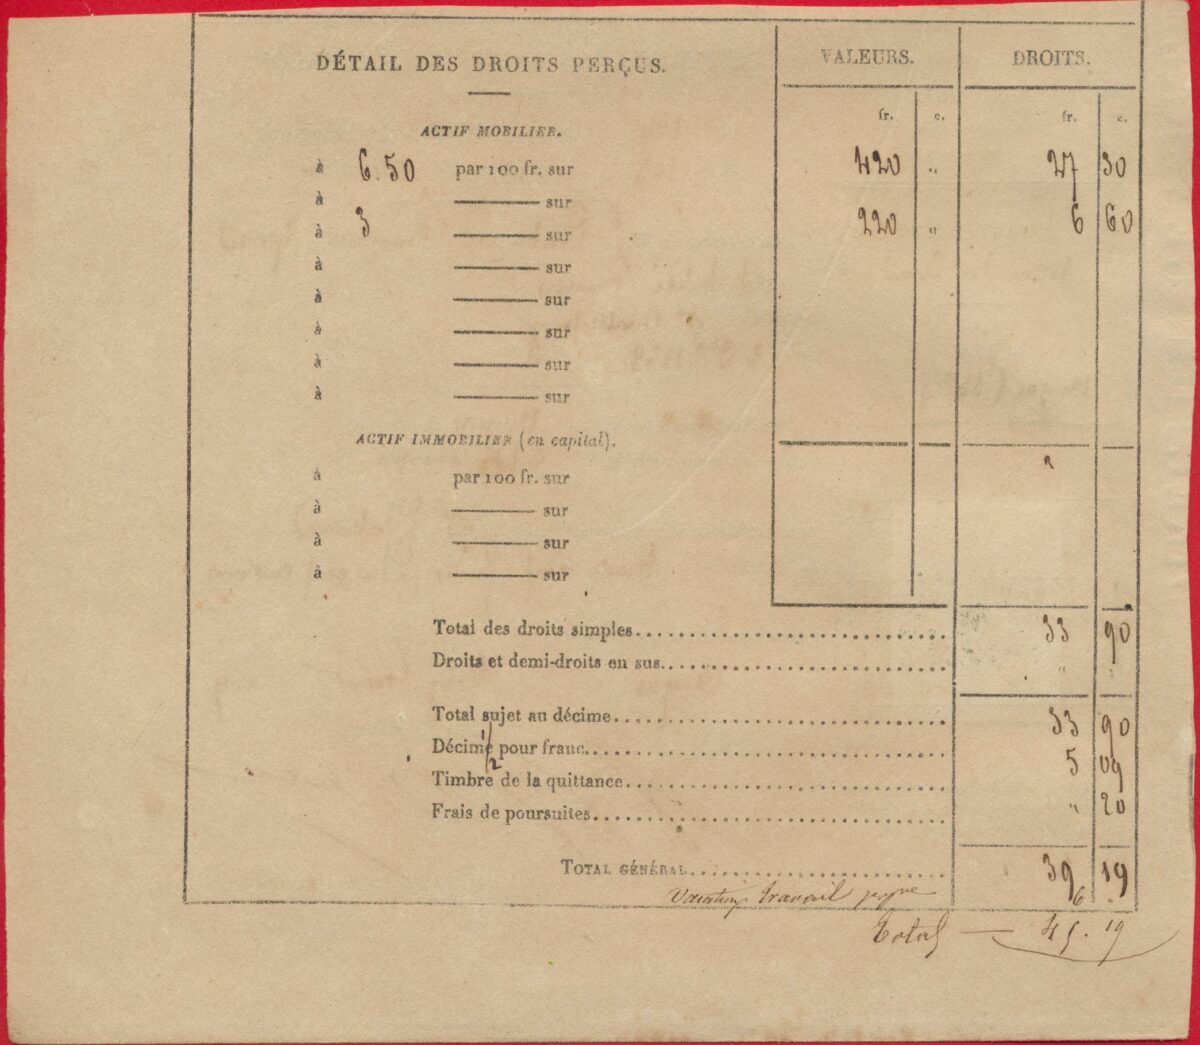 DÉTAIL DES DROITS PERÇUS.
VALEURS.
DROITS.
fr. c. fr. c.
ACTIF MOBILIER.
à 6.50 par 100 fr. sur 420 " 27 30
à ——— sur
à 3 ——— sur 220 " 6 60
à ——— sur
à ——— sur
à ——— sur
à ——— sur
à ——— sur
ACTIF IMMOBILIER (en capital).
à par 100 fr. sur
à ——— sur
à ——— sur
à ——— sur
Total des droits simples 33 90
Droits et demi-droits en sus " "
Total sujet au décime 33 90
Décime 1/2 pour franc 5 09
Timbre de la quittance " 20
Frais de poursuites
TOTAL GÉNÉRAL 39 19
travail 6 "
Total — 45.19